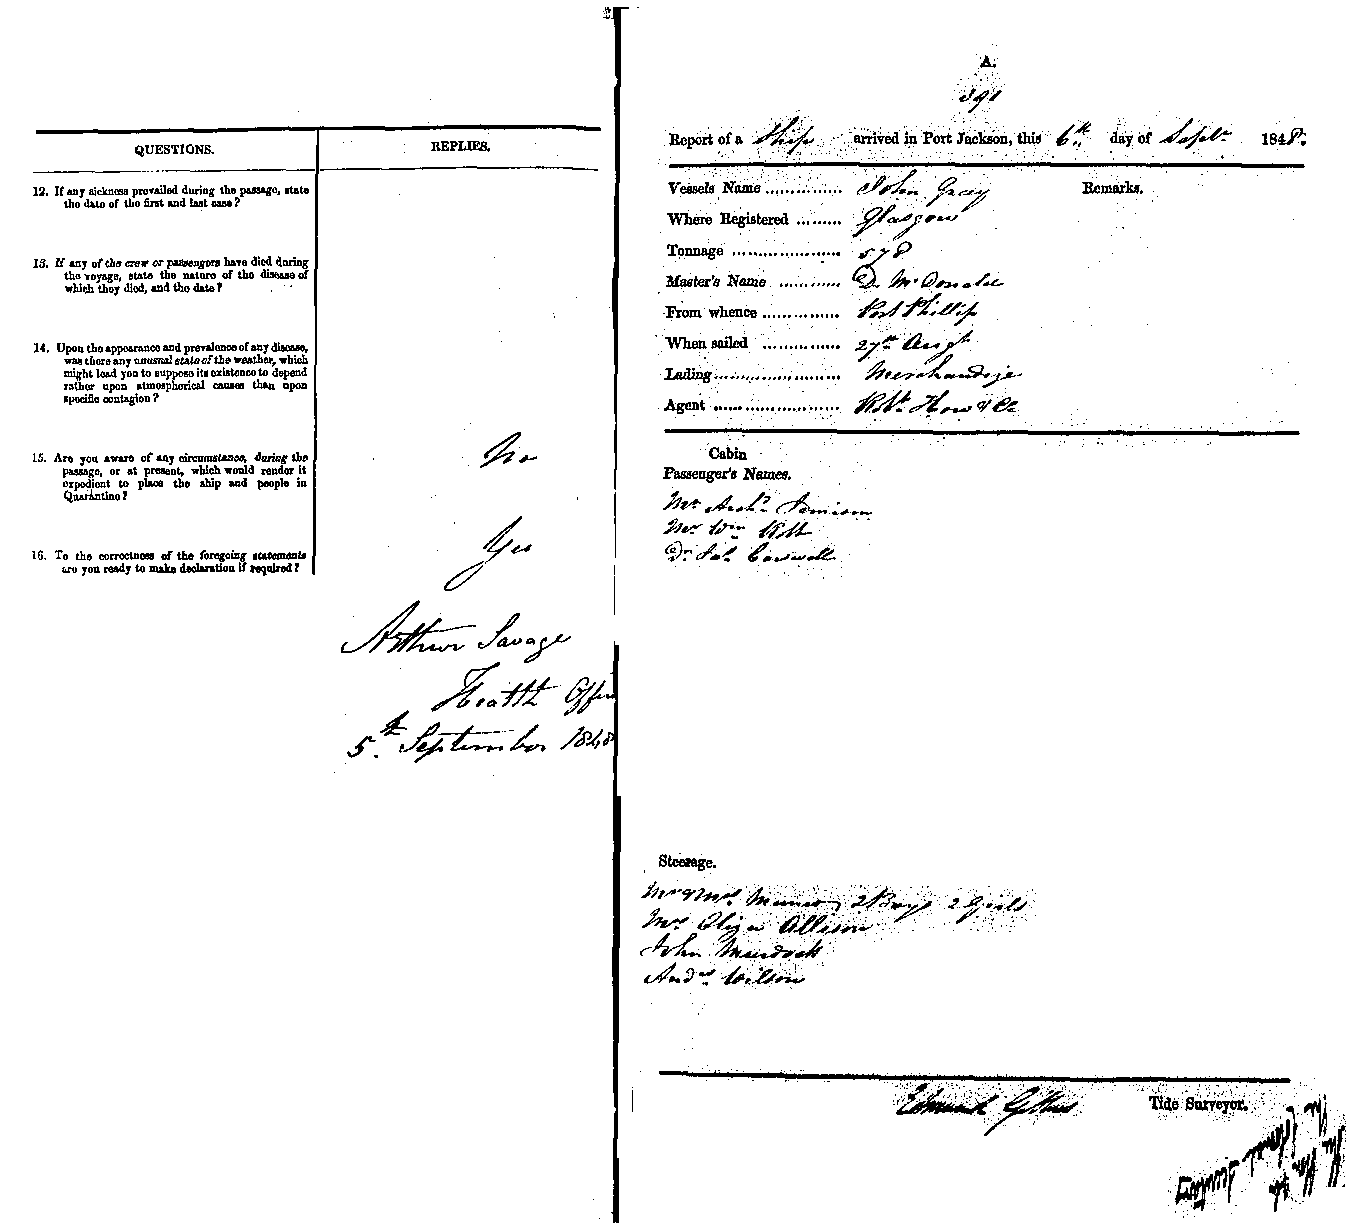 QUESTIONS.
REPLIES.
12. If any sickness prevailed during the passage, state
the date of the first and last case?
13. If any of the crew or passengers have died during
the voyage, state the nature of the disease of
which they died, and the date?
14. Upon the appearance and prevalence of any disease,
was there any unusual state of the weather, which
might lead you to suppose its existence to depend
rather upon atmospherical causes than upon
specific contagion?
15. Are you aware of any circumstance, during the
passage, or at present, which would render it
expedient to place the ship and people in
Quarantine?
No
16. To the correctness of the foregoing statements
are you ready to make declaration if required?
Yes
Arthur Savage
Health Office
5th September 1848
A.
391
Report of a Ship arrived in Port Jackson, this 6th day of Septr 1848.
Vessels Name ............... John Gray
Remarks.
Where Registered ......... Glasgow
Tonnage ..................... 578
Master's Name ............ D. McDonald
From whence ............... Port Phillip
When sailed ............... 27th Augt
Lading........................ Merchandize
Agent ........................ Robt. How & Co
Cabin
Passenger's Names.
Mr Archd. Jamieson
Mr Wm Kött
Dr Jas. Carswell
Steerage.
Mr & Mrs Munro 2 Boys 2 Girls
Mrs Eliza Allison
John Murdock
Andw Wilson
Edmund
Tide Surveyor.